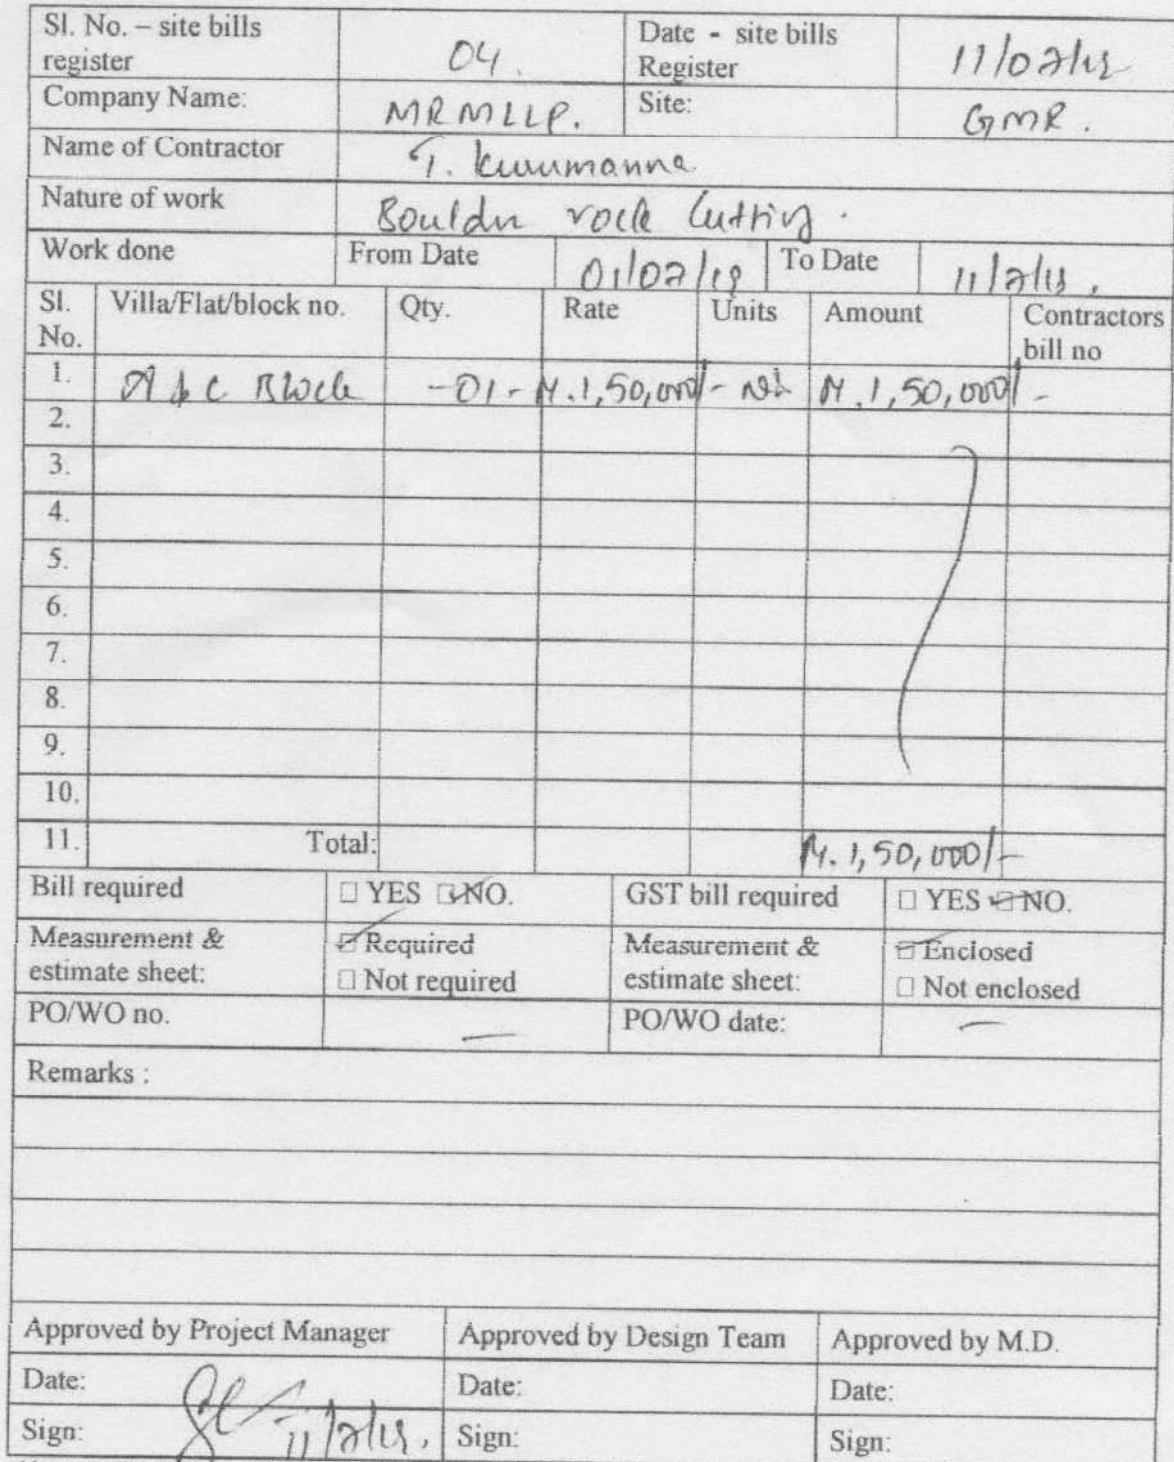 Sl. No. – site bills register 04. Date - site bills Register 11/02/19
Company Name: MRMLLP. Site: GMR.
Name of Contractor T.
Nature of work Bouldr rock Cutting.
Work done From Date 01/02/19 To Date 11/2/19.
Sl. No. Villa/Flat/block no. Qty. Rate Units Amount Contractors bill no
1. A & C Block -01- 1,50,000/- 1,50,000/-
2.
3.
4.
5.
6.
7.
8.
9.
10.
11. Total: 1,50,000/-
Bill required □ YES ☑ NO. GST bill required □ YES ☑ NO.
Measurement & estimate sheet: ☑ Required □ Not required Measurement & estimate sheet: ☑ Enclosed □ Not enclosed
PO/WO no. — PO/WO date: —
Remarks :
Approved by Project Manager Approved by Design Team Approved by M.D.
Date: Date: Date:
Sign: 11/2/19. Sign: Sign: